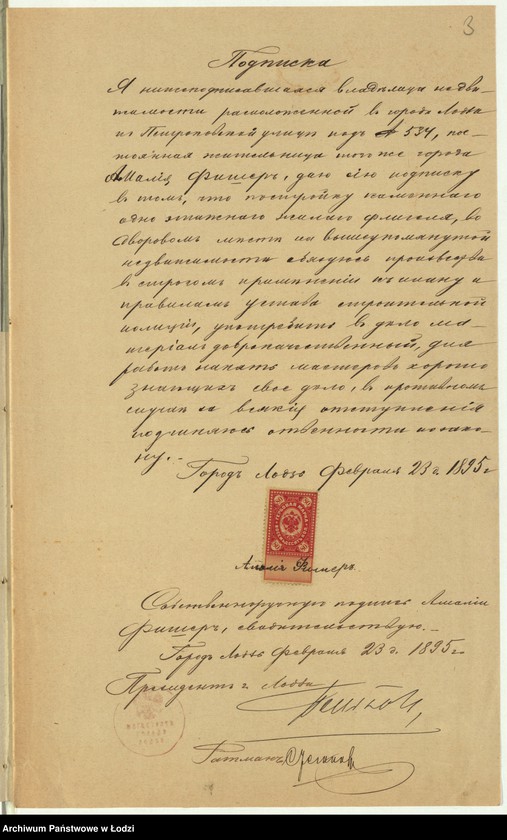 3
Подписка
Я нижеподписавшаяся владелица недви-
жимости расположенной в городе Лодзи
по Петроковской улице подъ № 534, пос-
тоянная жительница того же города
Амалія Фишеръ, даю сію подписку
в томъ, что постройку каменнаго
одно этажнаго жилаго флигеля, во
дворовомъ месте на вышеупомянутой
недвижимости обязуюсь произвести
в строгомъ применении къ плану и
правиламъ устава строительной
полиціи, употребить в дело ма-
теріалъ доброкачественный, для
работъ нанять мастеровъ хорошо
знающихъ свое дело, в противномъ
случае за всякія отступленія
подчиняюсь отвенности по зако-
ну.-
Городъ Лодзь Февраля 23 д. 1895 г
Амалія Фишеръ.
Собственноручную подпись Амаліи
Фишеръ, свидетельствую.-
Городъ Лодзь Февраля 23 д. 1895 г
Президентъ г. Лодзи
Ратманъ
Archiwum Państwowe w Łodzi